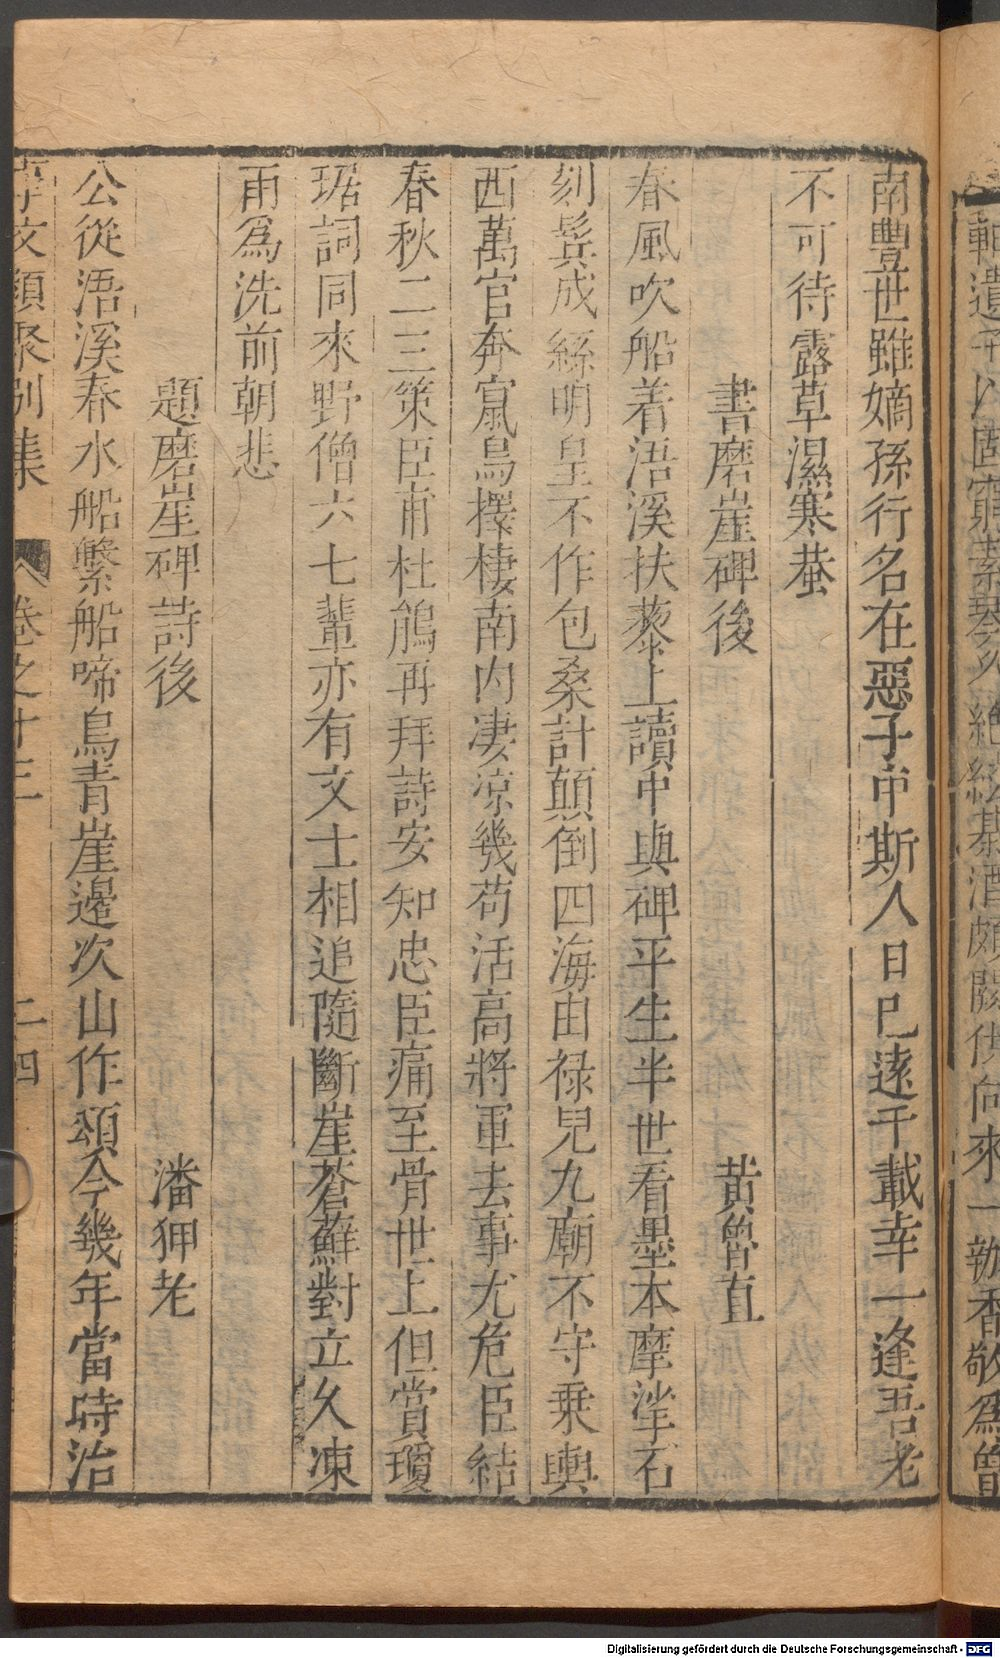 輒遺予以固窮素琴久絕絃棊酒頗闕供向來一瓣香敬爲曾
南豐世雖嫡孫行名在惡子中斯人日已遠千載幸一逢吾老
不可待露草濕寒蛬
書磨崖碑後 黃魯直
春風吹船着浯溪扶藜上讀中興碑平生半世看墨本摩挲石
刻鬂成絲明皇不作包桑計顛倒四海由禄兒九廟不守乗輿
西萬官奔竄鳥擇棲南内凄凉幾苟活高將軍去事尤危臣結
春秋二三策臣甫杜鵑再拜詩安知忠臣痛至骨世上但賞瓊
琚詞同來野僧六七輩亦有文士相追隨斷崖蒼蘚對立久凍
雨爲洗前朝悲
題磨崖碑詩後 潘狎老
公從浯溪春水船繫船啼鳥青崖邊次山作頌今幾年當時治
事文類聚别集 卷之十三 二四
Digitalisierung gefördert durch die Deutsche Forschungsgemeinschaft - DFG